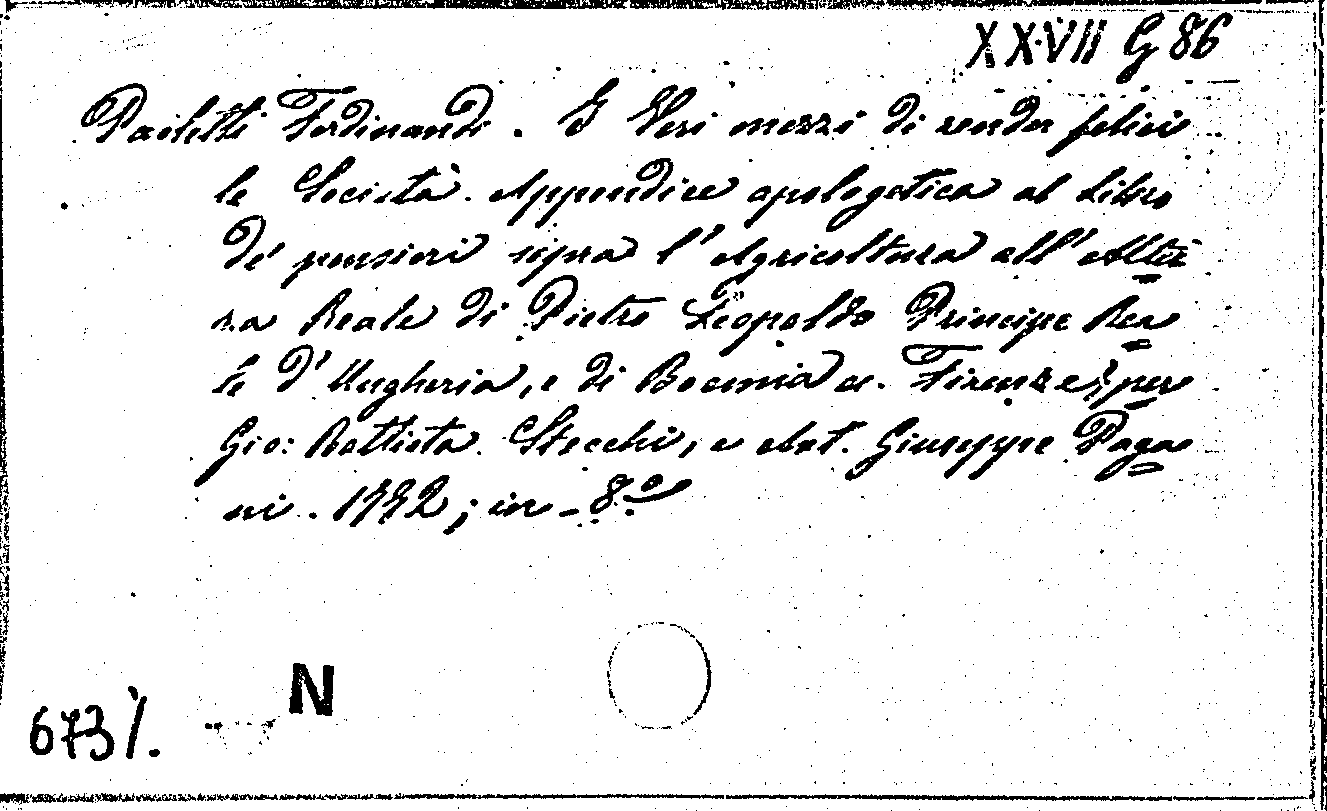 XXVII G 86
Paoletti Ferdinando. I Veri mezzi di render felici
le Società. Appendice apologetica al Libro
de' pensieri sopra l'Agricoltura all'Altez
za Reale di Pietro Leopoldo Principe Rea
le d'Ungheria, e di Boemia ec. Firenze, per
Gio: Battista Stecchi, e Ant. Giuseppe Paga
ni. 1772; in-8.º
N
673%.